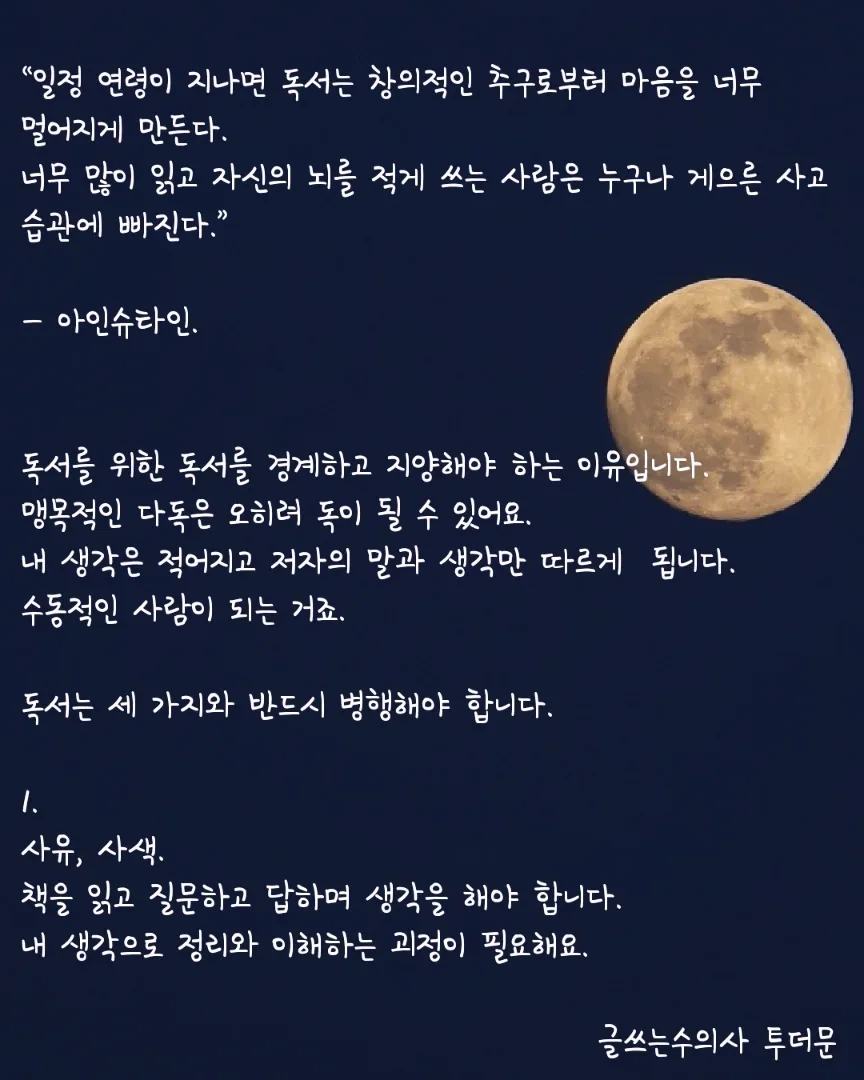 “일정 연령이 지나면 독서는 창의적인 추구로부터 마음을 너무
멀어지게 만든다.
너무 많이 읽고 자신의 뇌를 적게 쓰는 사람은 누구나 게으른 사고
습관에 빠진다.”
- 아인슈타인.
독서를 위한 독서를 경계하고 지양해야 하는 이유입니다.
맹목적인 다독은 오히려 독이 될 수 있어요.
내 생각은 적어지고 저자의 말과 생각만 따르게 됩니다.
수동적인 사람이 되는 거죠.
독서는 세 가지와 반드시 병행해야 합니다.
1.
사유, 사색.
책을 읽고 질문하고 답하며 생각을 해야 합니다.
내 생각으로 정리와 이해하는 괴정이 필요해요.
글쓰는수의사 투더문